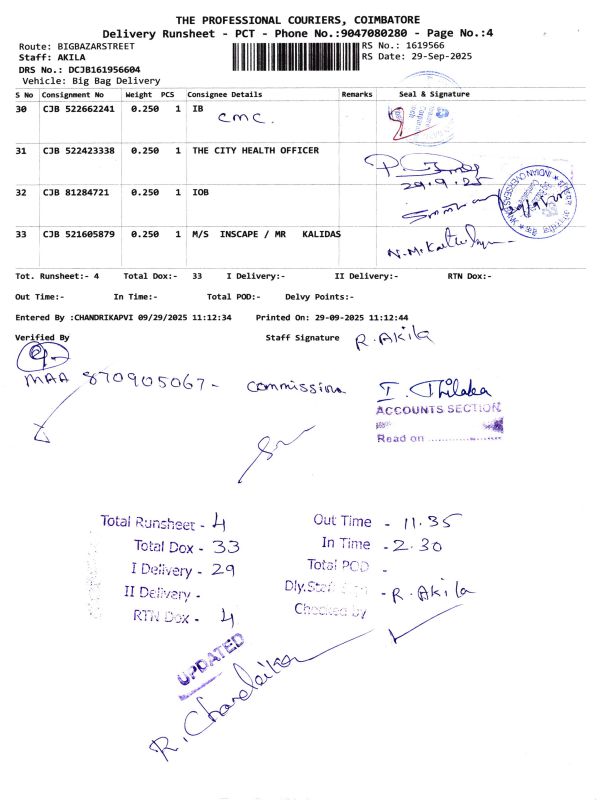 THE PROFESSIONAL COURIERS, COIMBATORE
Delivery Runsheet - PCT - Phone No.:9047080280 - Page No.:4
Route: BIGBAZARSTREET
RS No.: 1619566
Staff: AKILA
RS Date: 29-Sep-2025
DRS No.: DCJB161956604
Vehicle: Big Bag Delivery
S No Consignment No Weight PCS Consignee Details Remarks Seal & Signature
30 CJB 522662241 0.250 1 IB
CMC.
31 CJB 522423338 0.250 1 THE CITY HEALTH OFFICER
29.9.25
32 CJB 81284721 0.250 1 IOB
33 CJB 521605879 0.250 1 M/S INSCAPE / MR KALIDAS
Tot. Runsheet:- 4 Total Dox:- 33 I Delivery:- II Delivery:- RTN Dox:-
Out Time:- In Time:- Total POD:- Delvy Points:-
Entered By :CHANDRIKAPVI 09/29/2025 11:12:34 Printed On: 29-09-2025 11:12:44
Verified By Staff Signature R. Akila
MAA 870905067- commission I. Thilaka
ACCOUNTS SECTION
Read on
Total Runsheet - 4 Out Time - 11.35
Total Dox - 33 In Time - 2.30
I Delivery - 29 Total POD -
II Delivery - Dly.Staff Sign - R. Akila
RTN Dox - 4 Checked by
UPDATED
R. Chandrika